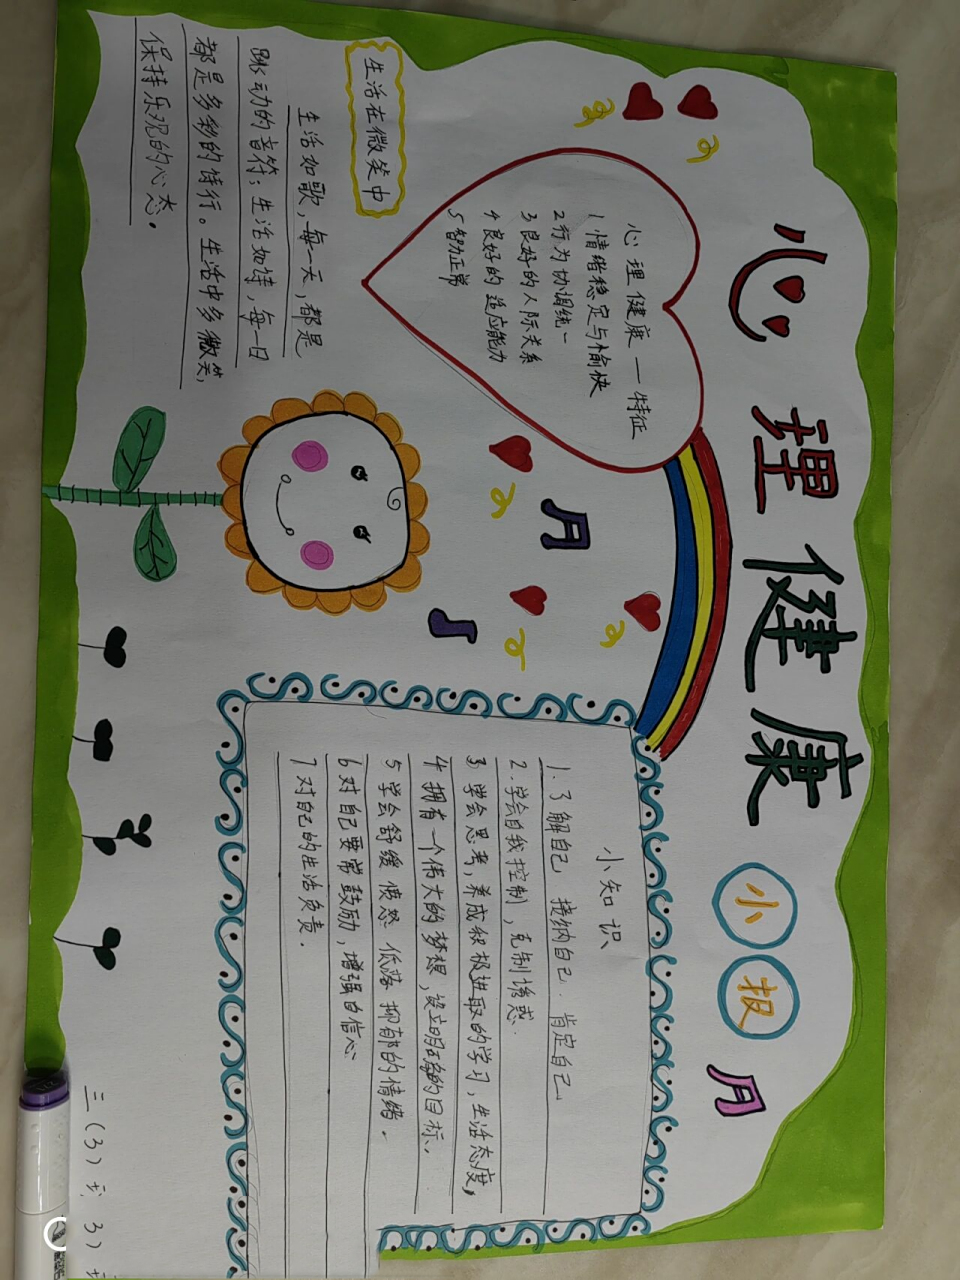 心理健康
小报
心理健康——特征
1情绪稳定与愉快
2行为协调统一
3良好的人际关系
4良好的适应能力
5智力正常
生活在微笑中
生活如歌，每一天，都是
跳动的音符；生活如诗，每一日
都是多彩的诗行。生活中多微笑，
保持乐观的心态。
小知识
1.了解自己 接纳自己．肯定自己
2.学会自我控制，克制诱惑．
3 学会思考，养成积极进取的学习，生活态度，
4 拥有一个伟大的梦想，设立明确的目标．
5 学会舒缓 愤怒 低落 抑郁的情绪．
6 对自己要常鼓励，增强自信心
7 对自己的生活负责．
三（3）